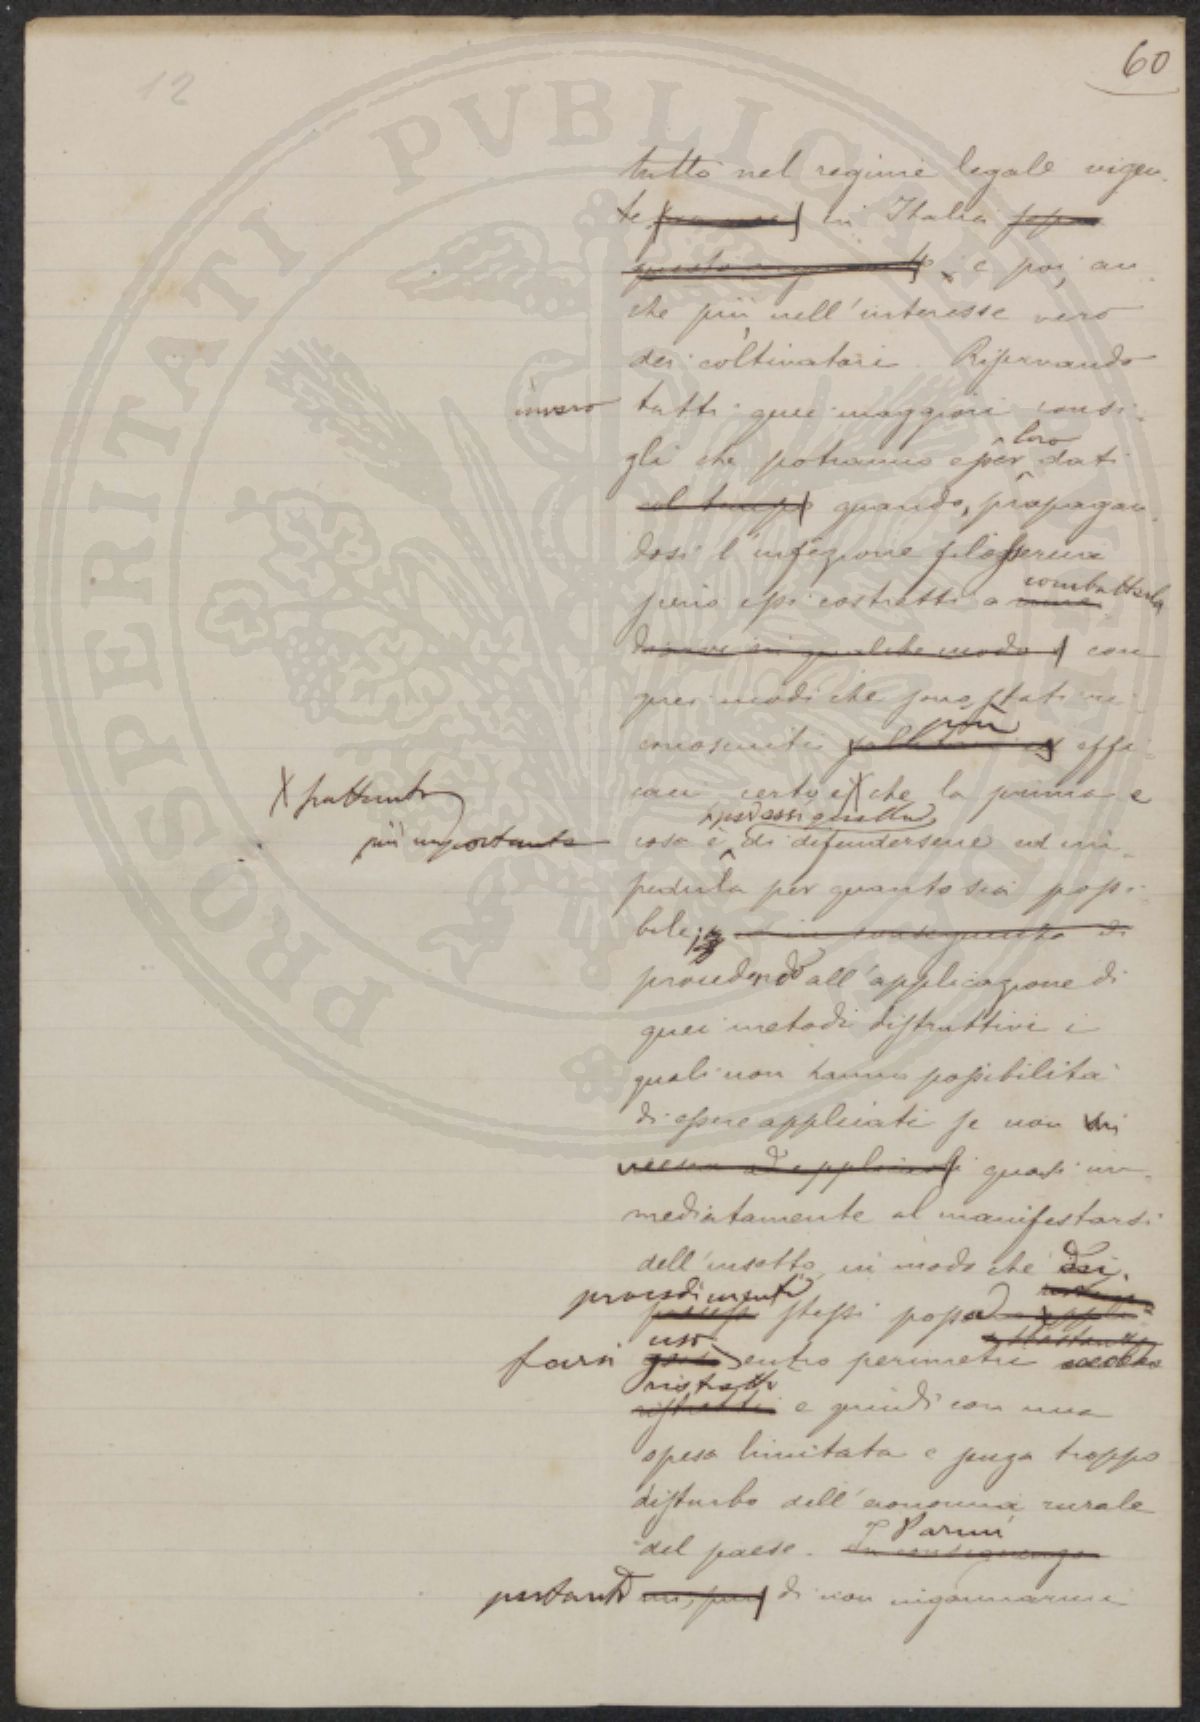 60
12
tutto nel regime legale vigen-
te in Italia
e poi, an-
che più nell'interesse vero
dei coltivatori. Riservando
invero tutti quei maggiori consi-
gli che potranno esser loro dati
col tempo quando, propagan-
dosi l'infezione filosserica
sieno essi costretti a combatterla
in qualche modo con
quei modi che sono stati ri-
conosciuti più effi-
caci certo è X che la prima e
X frattanto
più importante cosa è per essi quella di difendersene ed im-
pedirla per quanto sia possi-
bile; e in conseguenza di
procedendo all'applicazione di
quei metodi distruttivi i
quali non hanno possibilità
di essere applicati se non
quasi im-
mediatamente al manifestarsi
dell'insetto, in modo che dei
procedimenti stessi possa
farsi uso entro perimetri
ristretti e quindi con una
spesa limitata e senza troppo
disturbo dell'economia rurale
del paese. In conseguenza Parmi
pertanto di non ingannarmi
PROSPERITATI PVBLICAE